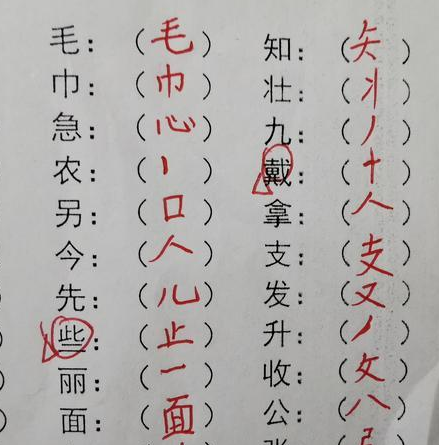 毛：（毛） 知：（矢）
巾：（巾） 壮：（丬）
急：（心） 九：（丿）
农：（丨） 戴：（十）
另：（口） 拿：（人）
今：（人） 支：（支）
先：（儿） 发：（又）
些：（止） 升：（丿）
丽：（一） 收：（攵）
面：（面） 公：（八）